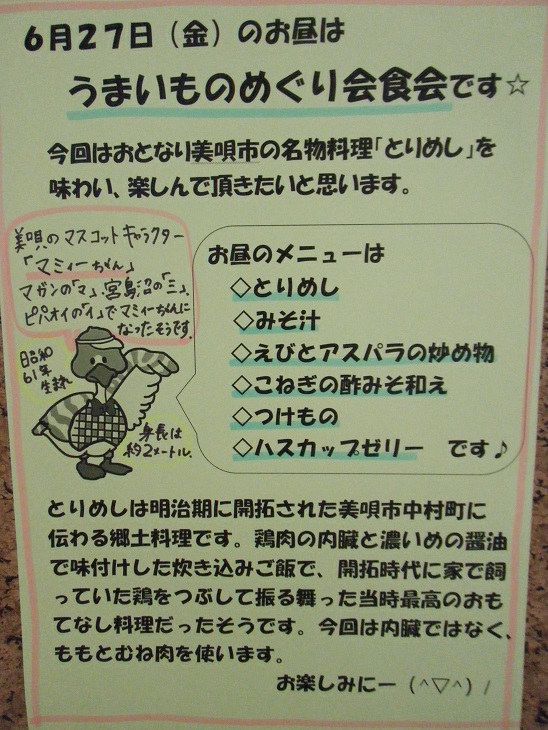 6月27日（金）のお昼は
うまいものめぐり会食会です☆
今回はおとなり美唄市の名物料理「とりめし」を
味わい、楽しんで頂きたいと思います。
美唄のマスコットキャラクター
「マミィーちゃん」
マガンの「マ」、宮島沼の「ミ」、
ピパオイの「イ」でマミィーちゃんに
なったそうです。
昭和
61年
生まれ
身長は
約2メートル。
お昼のメニューは
◇とりめし
◇みそ汁
◇えびとアスパラの炒め物
◇こねぎの酢みそ和え
◇つけもの
◇ハスカップゼリー　です♪
とりめしは明治期に開拓された美唄市中村町に
伝わる郷土料理です。鶏肉の内臓と濃いめの醤油
で味付けした炊き込みご飯で、開拓時代に家で飼
っていた鶏をつぶして振る舞った当時最高のおも
てなし料理だったそうです。今回は内臓ではなく、
ももとむね肉を使います。
お楽しみにー（^▽^）/